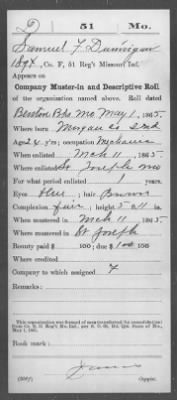 D 51 Mo.
Samuel F Dunnigan
, Co. F, 51 Reg't Missouri Inf.
Appears on
Company Muster-in and Descriptive Roll
of the organization named above. Roll dated
Benton Bks Mo May 1, 1865.
Where born Morgan Co Ind
Age 24 y'rs; occupation Mechanic
When enlisted Mch 11, 1865.
Where enlisted St Joseph Mo
For what period enlisted 1 years.
Eyes blue; hair Brown
Complexion fair; height 5 ft. 11 in.
When mustered in Mch 11, 1865.
Where mustered in St Joseph
Bounty paid $ 100; due $ 100 100
Where credited
Company to which assigned F
Remarks:
Book mark:
Copyist.